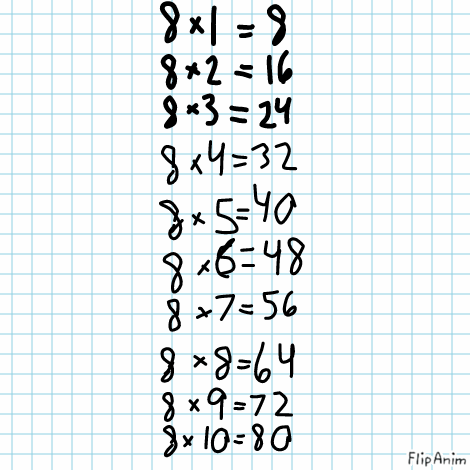 8×1=8
8×2=16
8×3=24
8×4=32
8×5=40
8×6=48
8×7=56
8×8=64
8×9=72
8×10=80
FlipAnim